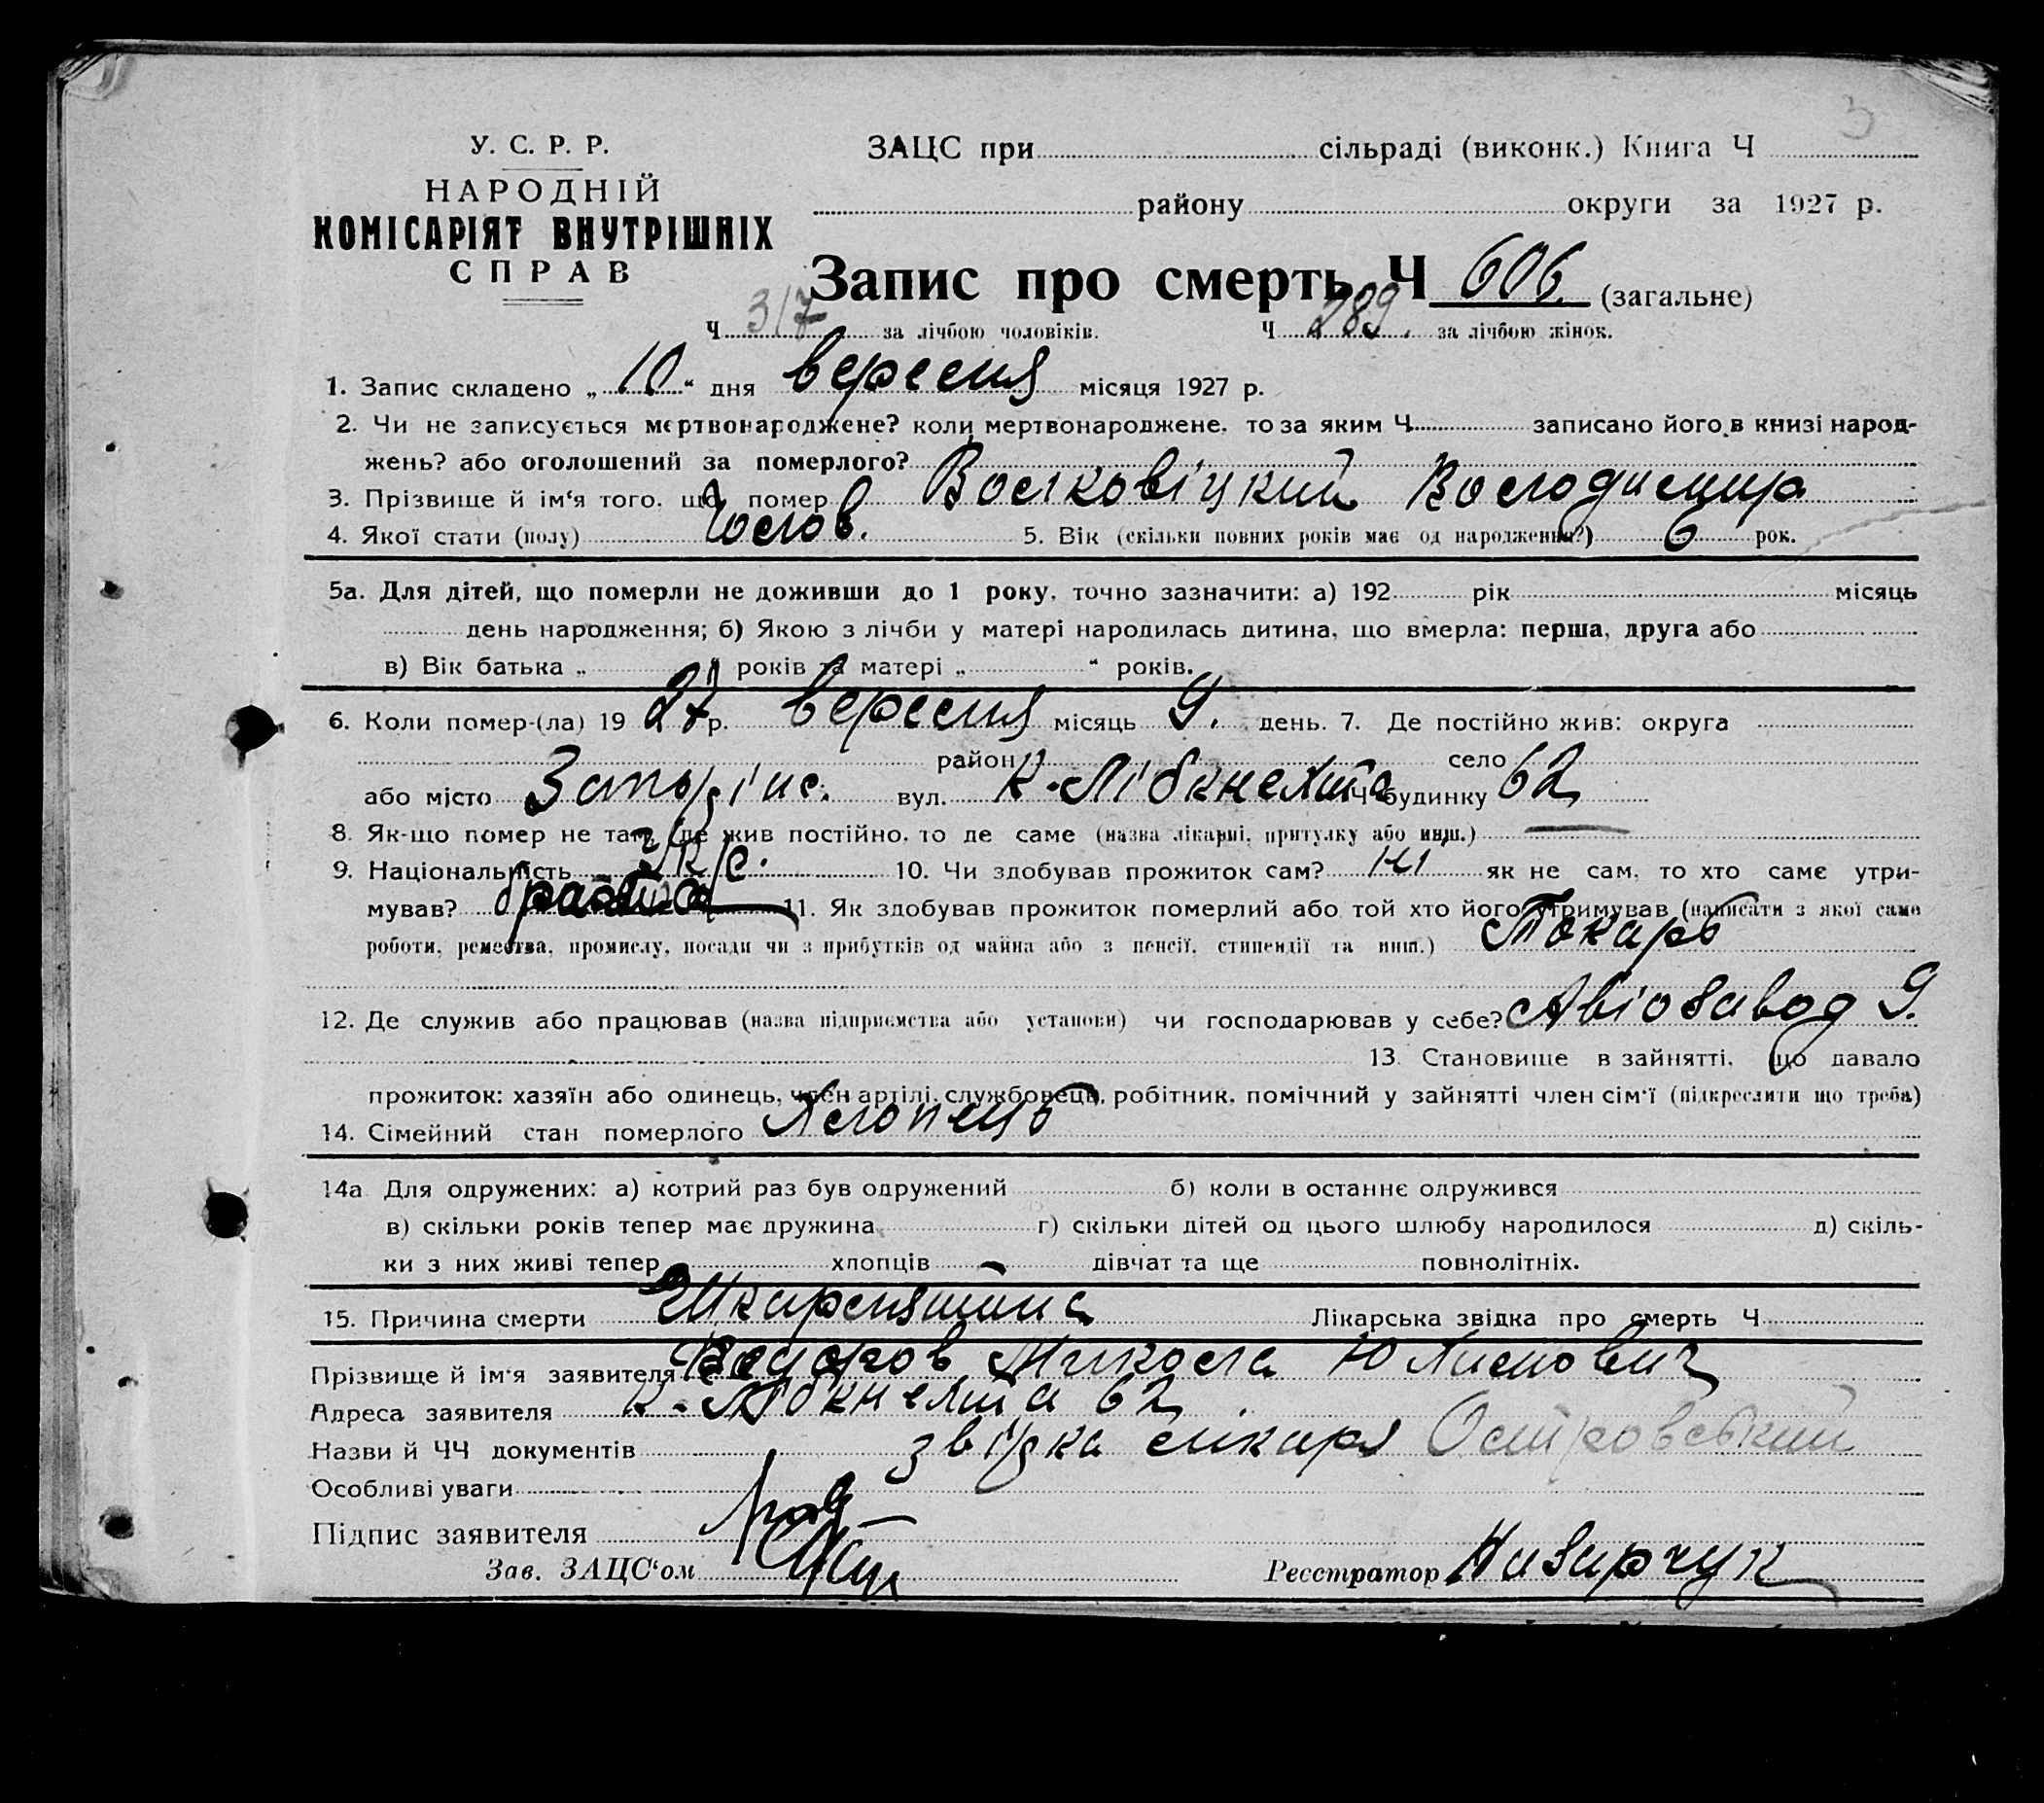 У. С. Р. Р.
НАРОДНІЙ
КОМІСАРІЯТ ВНУТРІШНІХ
СПРАВ
3
ЗАЦС при сільраді (виконк.) Книга Ч
району округи за 1927 р.
Запис про смерть Ч 606 (загальне)
Ч 317 за лічбою чоловіків. Ч 289 за лічбою жінок.
1. Запис складено „ 10 “ дня вересня місяця 1927 р.
2. Чи не записується мертвонароджене? коли мертвонароджене, то за яким Ч записано його в книзі народ-
жень? або оголошений за померлого?
3. Прізвище й ім‘я того, що помер Володимир
4. Якої стати (полу) Чолов. 5. Вік (скільки повних років має од народження?) 6 рок.
5а. Для дітей, що померли не доживши до 1 року, точно зазначити: а) 192 рік місяць
день народження; б) Якою з лічби у матері народилась дитина, що вмерла: перша, друга або
в) Вік батька „ “ років та матері „ “ років.
6. Коли помер-(ла) 19 27 р. вересня місяць 9. день. 7. Де постійно жив: округа
район село
або місто вул. К. Лібкнехта Ч будинку 62
8. Як-що помер не там, де жив постійно, то де саме (назва лікарні, притулку або инш.) —
9. Національність 10. Чи здобував прожиток сам? Ні як не сам, то хто саме утри-
мував? 11. Як здобував прожиток померлий або той хто його утримував (написати з якої само
роботи, ремества, промислу, посади чи з прибутків од майна або з пенсії, стипендії та инш.) Токарь
12. Де служив або працював (назва підприємства або установи) чи господарював у себе? Авіозавод 9.
13. Становище в зайнятті, що давало
прожиток: хазяїн або одинець, член артілі, службовець, робітник, помічний у зайнятті член сім‘ї (підкреслити що треба)
14. Сімейний стан померлого Хлопець
14а Для одружених: а) котрий раз був одружений б) коли в останнє одружився
в) скільки років тепер має дружина г) скільки дітей од цього шлюбу народилося д) скіль-
ки з них живі тепер хлопців дівчат та ще повнолітніх.
15. Причина смерти Шкарлятина Лікарська звідка про смерть Ч
Прізвище й ім‘я заявителя Микола
Адреса заявителя К. Лібкнехта 62
Назви й ЧЧ документів звідка лікаря Островський
Особливі уваги
Підпис заявителя
Зав. ЗАЦС‘ом Реєстратор Назарчук